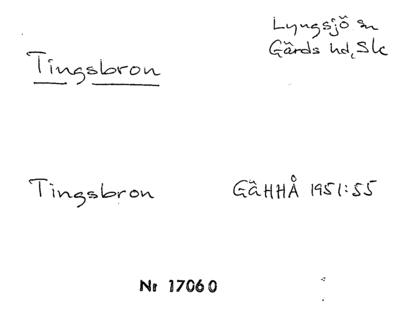 Lyngsjö sn
Gärds hd, Sk
Tingsbron
Tingsbron GäHHÅ 1951:55
Nr 17060